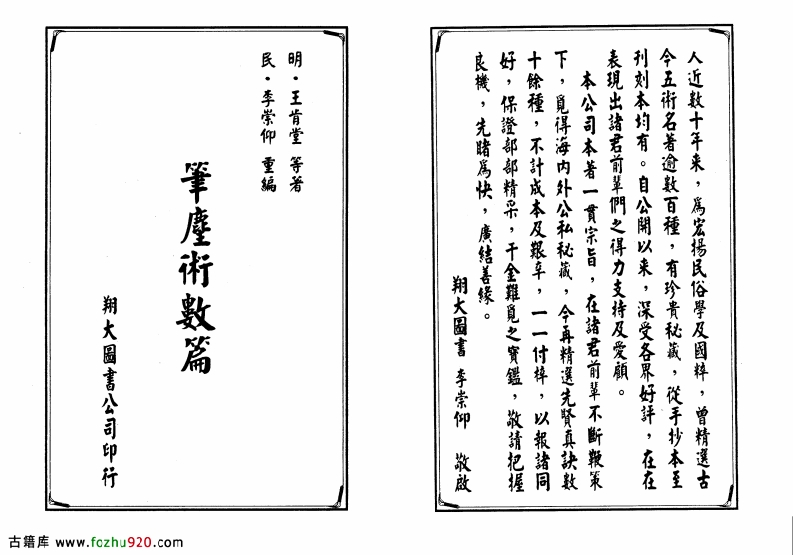 人近數十年来，為宏揚民俗學及國粹，曾精選古
今五術名著逾數百種，有珍貴秘藏，從手抄本至
刊刻本均有。自公開以来，深受各界好評，在在
表現出諸君前輩們之得力支持及愛顧。
本公司本著一貫宗旨，在諸君前輩不斷鞭策
下，覓得海内外公私秘藏，今再精選先賢真訣數
十餘種，不計成本及艱辛，一一付梓，以報諸同
好，保證部部精采，千金難覓之寶鑑，敬請把握
良機，先睹為快，廣結善緣。
翔大圖書 李崇仰 敬啟
明·王肯堂 等著
民·李崇仰 重編
筆麈術數篇
翔大圖書公司印行
古籍库 www.fozhu920.com